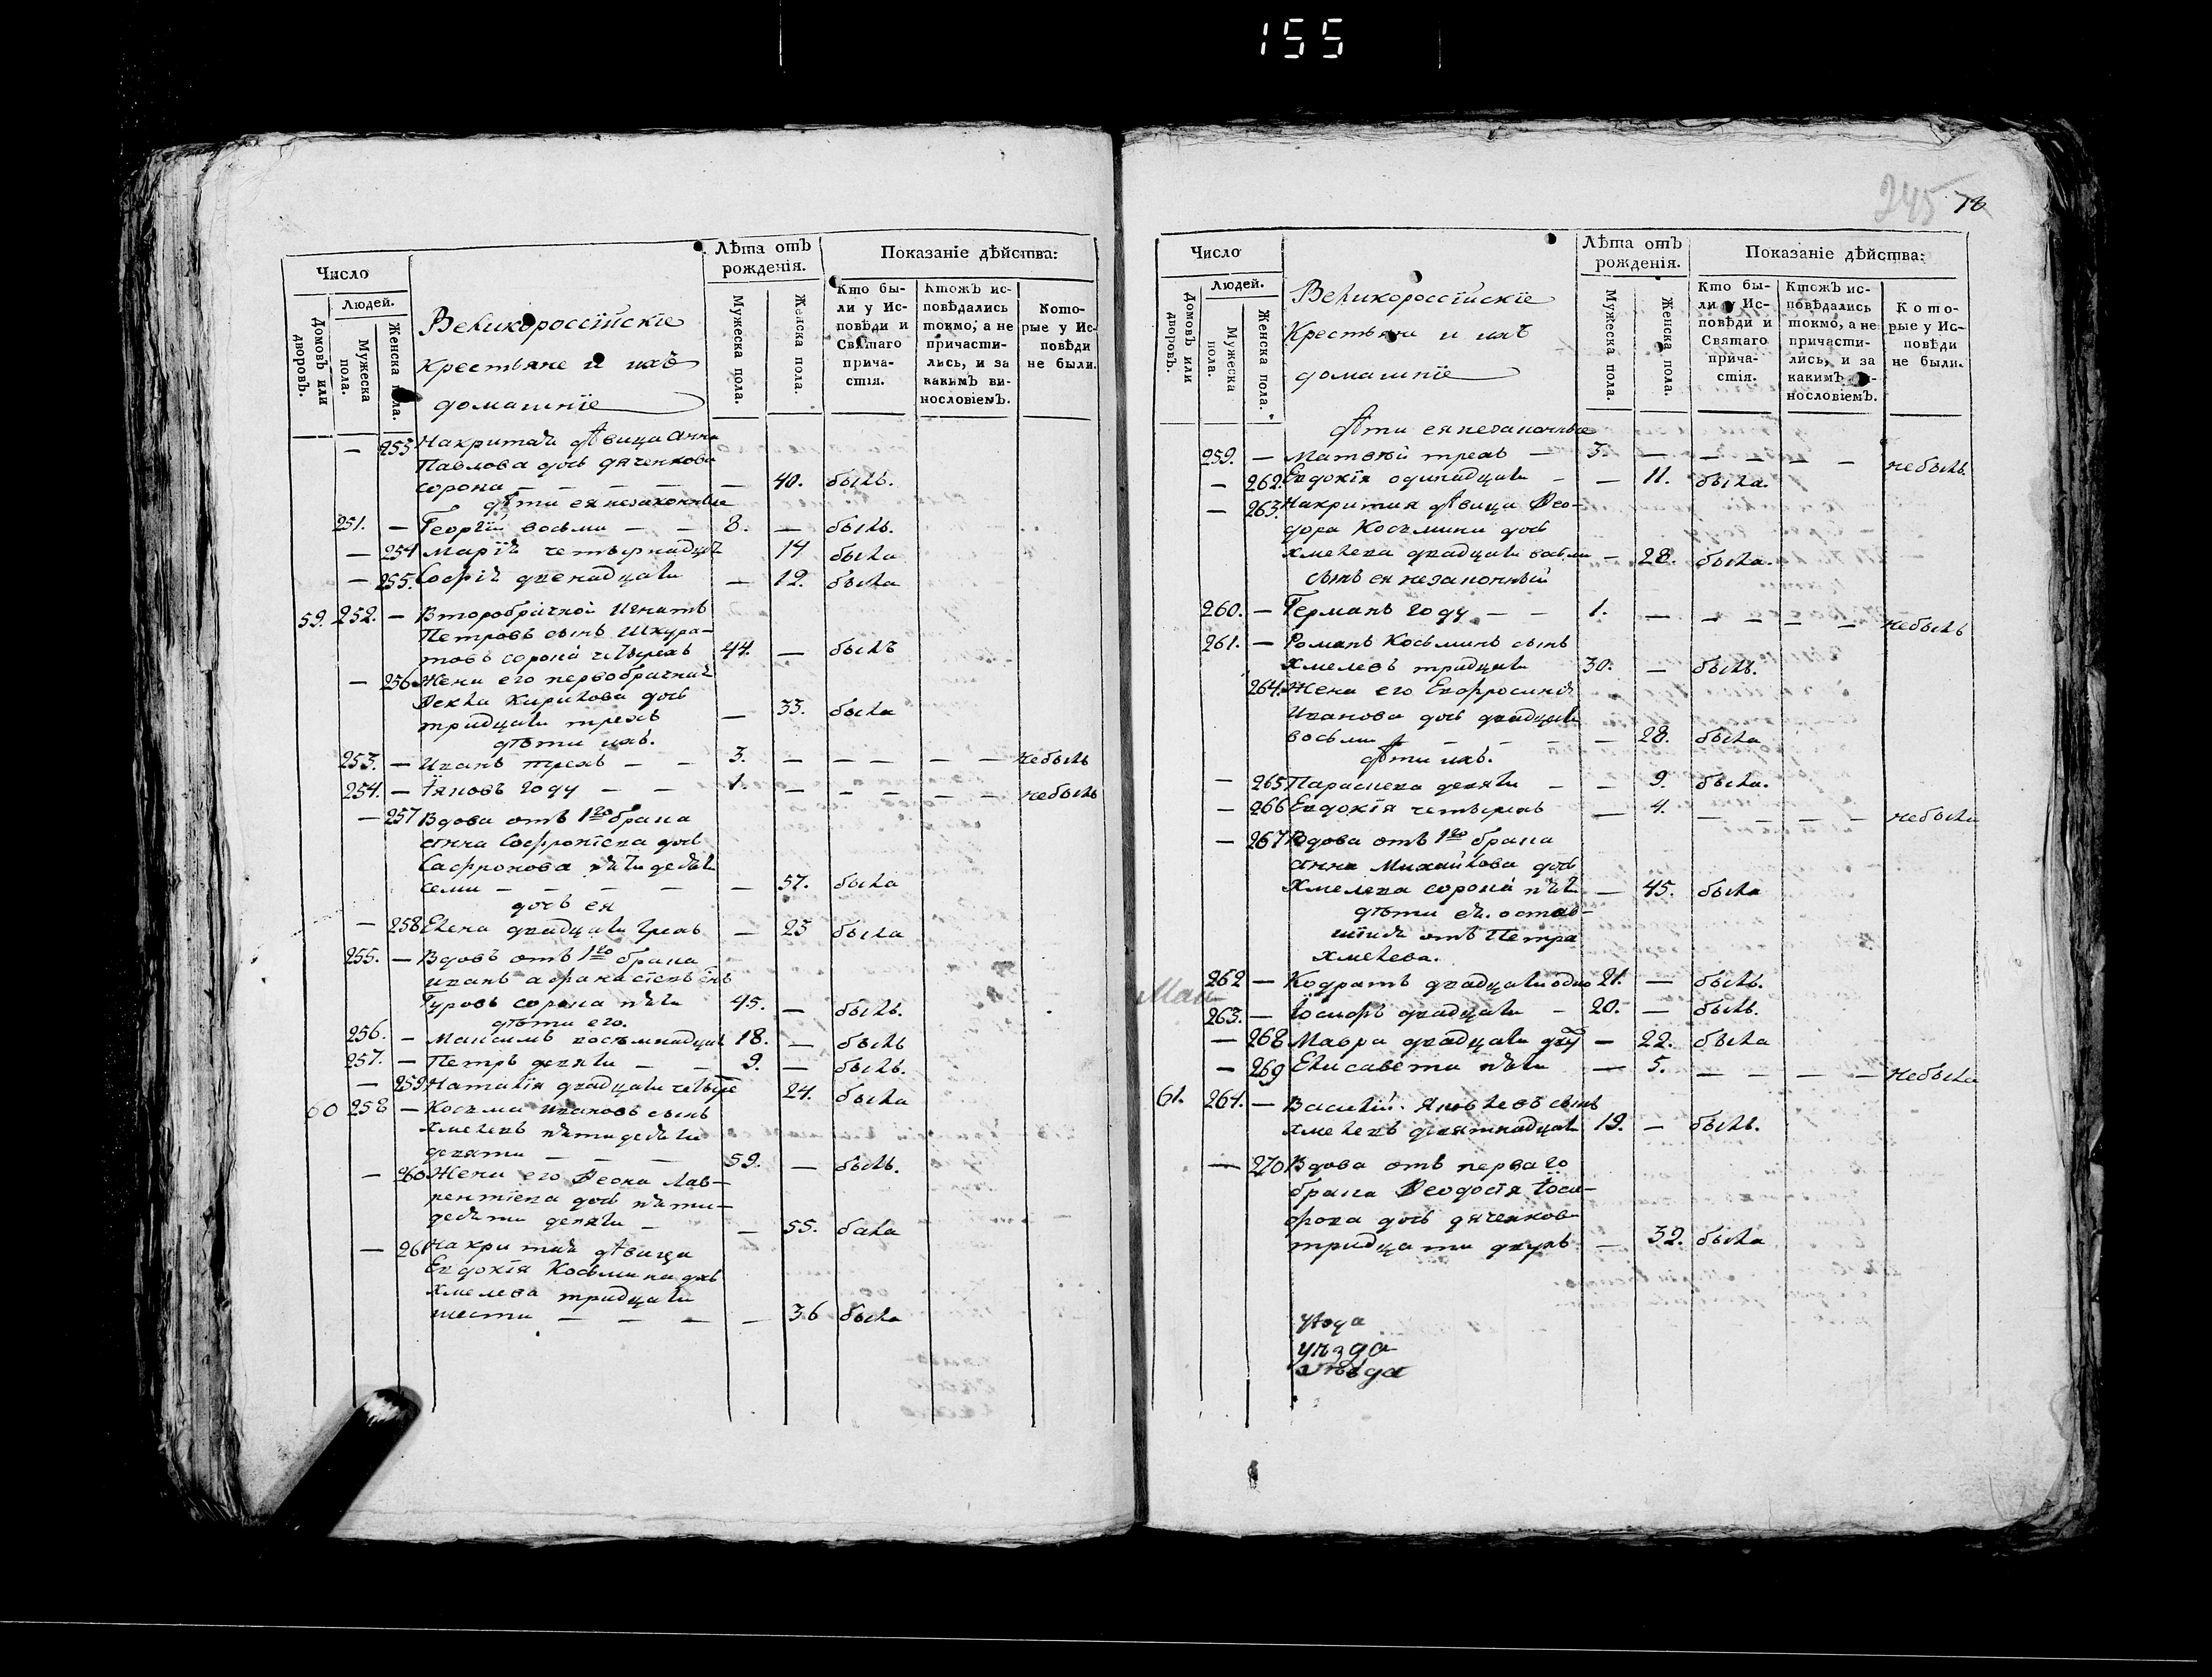 155
Число
Людей.
Домовъ или дворовъ.
Мужеска пола.
Женска пола.
Великороссїйскїе
крестьяне и ихъ
домашнїе
Лѣта отъ рожденїя.
Мужеска пола.
Женска пола.
Показанїе дѣйства:
Кто были у Исповѣди и Святаго причастїя.
Ктожъ исповѣдались токмо, а не причастились, и за какимъ винословїемъ.
Которые у Исповѣди не были.
— 253 Накритая дѣвица Анна
Павлова дочь дяченкова
сорока — — — — — 40. быль.
дѣти ея незаконные
251. — Георгїй восьми — — 8. — быль.
— 254 Марїя четырнадцат 14 была
— 255. Софїя двенадцати — 12. была
59. 252. — Второбрачной Игнатъ
Петровъ сынъ Шкура-
товъ сорока четырехъ 44. — былъ
— 256 Жена его первобрачная
Ѳекла Кирилова дочь
тридцати трехъ — 33. была
дѣти ихъ.
253. — Иванъ трехъ — — 3. — — — — — небылъ
254. — Їяковъ году — — 1. — — — — — небылъ
— 257 Вдова отъ 1го брака
Анна Софронїева дочь
Сафронова пятидесят
семи — — — — — 57. была
дочь ея
— 258 Елена двадцати трехъ — 23 была
255. — Вдовъ отъ 1го брака
Иванъ Афанасїевъ снъ
Гуровъ сорока пяти 45. — былъ.
дѣти его.
256. — Максимъ восемнадцат 18. — былъ
257. — Петръ девяти — — 9. — былъ.
— 259 Наталїя двадцати четыре 24. была
60 258 — Косьма Ивановъ сынъ
Хмелевъ пятидесяти
девяти — — — 59. — былъ.
— 260 Жена его Ѳеона Лав-
рентїева дочь пяти-
десяти девяти — — 55. бала
— 261 Накритая дѣвица
Евдокїя Косьмина дчь
Хмелева тридцати
шести — — — — 36 была
245
78
Число
Людей.
Домовъ или дворовъ.
Мужеска пола.
Женска пола.
Великороссїйскїе
Крестьяне и ихъ
домашнїе
Лѣта отъ рожденїя.
Мужеска пола.
Женска пола.
Показанїе дѣйства:
Кто были у Исповѣди и Святаго причастїя.
Ктожъ исповѣдались токмо, а не причастились, и за какимъ винословїемъ.
Которые у Исповѣди не были.
дѣти ея незаконные
259. — Матвѣй трехъ — 3. — — — — — небылъ.
— 262. Евдокїя одинадцати — — 11. была.
— 263. Накритая дѣвица Ѳео-
дора Косьмина дочь
Хмелева двадцати восьми — 28. была.
сынъ ея незаконный
260. — Германъ году — — 1. — — — — — небылъ
261. — Романъ Косьминъ сынъ
Хмелевъ тридцати 30. — былъ.
264. Жена его Евфросинїя
Иванова дочь двадцати
восьми — — — — 28. была
дѣти ихъ.
— 265 Параскева девяти — — 9. была.
— 266 Евдокїя четырехъ — 4. — — — — небыла
— 267 Вдова отъ 1го брака
Анна Михайлова дочь
Хмелева сорока пят — 45. была
дѣти ея остав-
шїися отъ Петра
Хмелева.
262 — Кодратъ двадцати одно 21. — былъ.
263. — Їосифъ двадцати — 20. — былъ.
— 268 Мавра двадцати двѹ — 22. была
— 269 Елисавета пяти — 5. — — — — небыла
61. 264. — Василїй Яковлевъ сынъ
Хмелевъ девятнадцати 19. — былъ.
— 270 Вдова отъ перваго
брака Ѳеодосїя Їоси-
фова дочь дяченкова
тридцати двухъ — 32. была
уѣзда